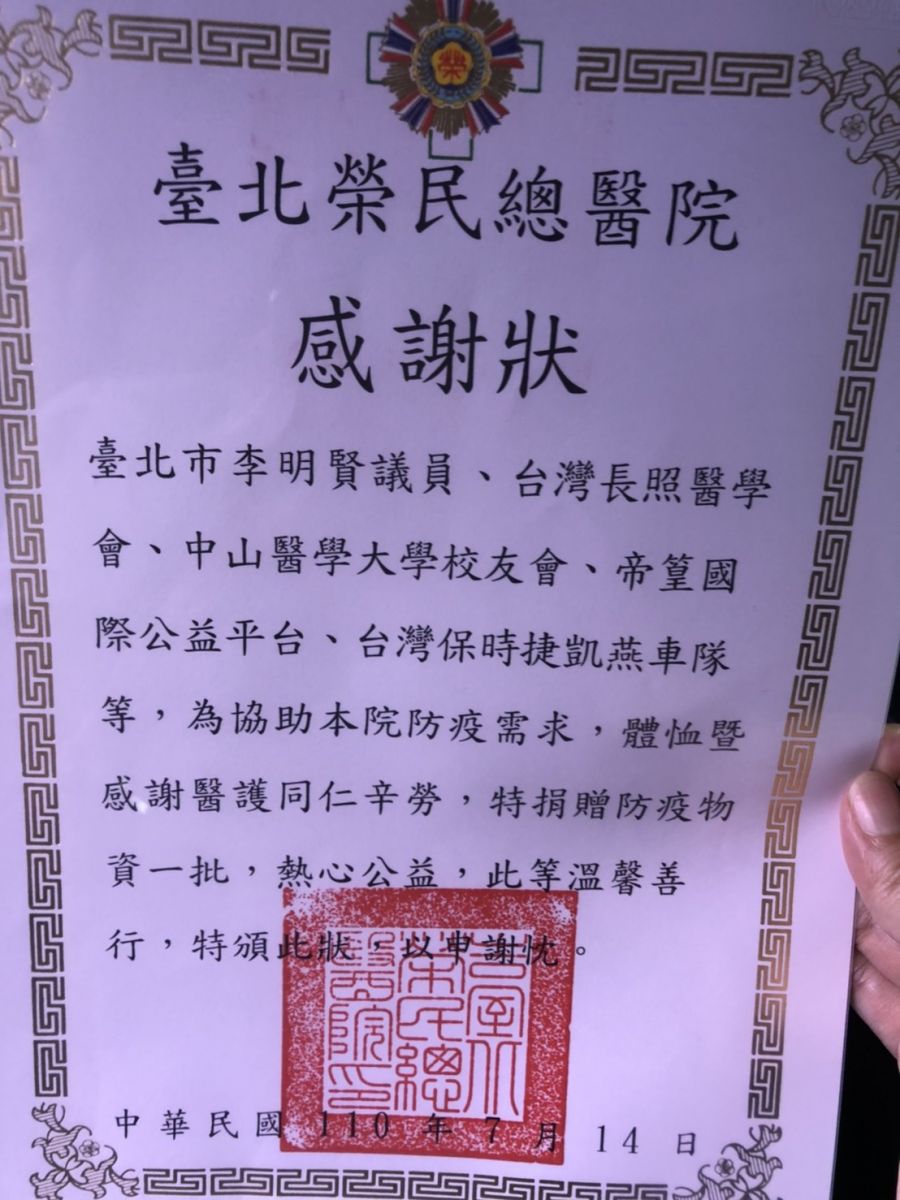 榮
臺北榮民總醫院
感謝狀
臺北市李明賢議員、台灣長照醫學
會、中山醫學大學校友會、帝篁國
際公益平台、台灣保時捷凱燕車隊
等，為協助本院防疫需求，體恤暨
感謝醫護同仁辛勞，特捐贈防疫物
資一批，熱心公益，此等溫馨善
行，特頒此狀，以申謝忱。
臺北榮民總醫院印
中華民國 110 年 7 月 14 日